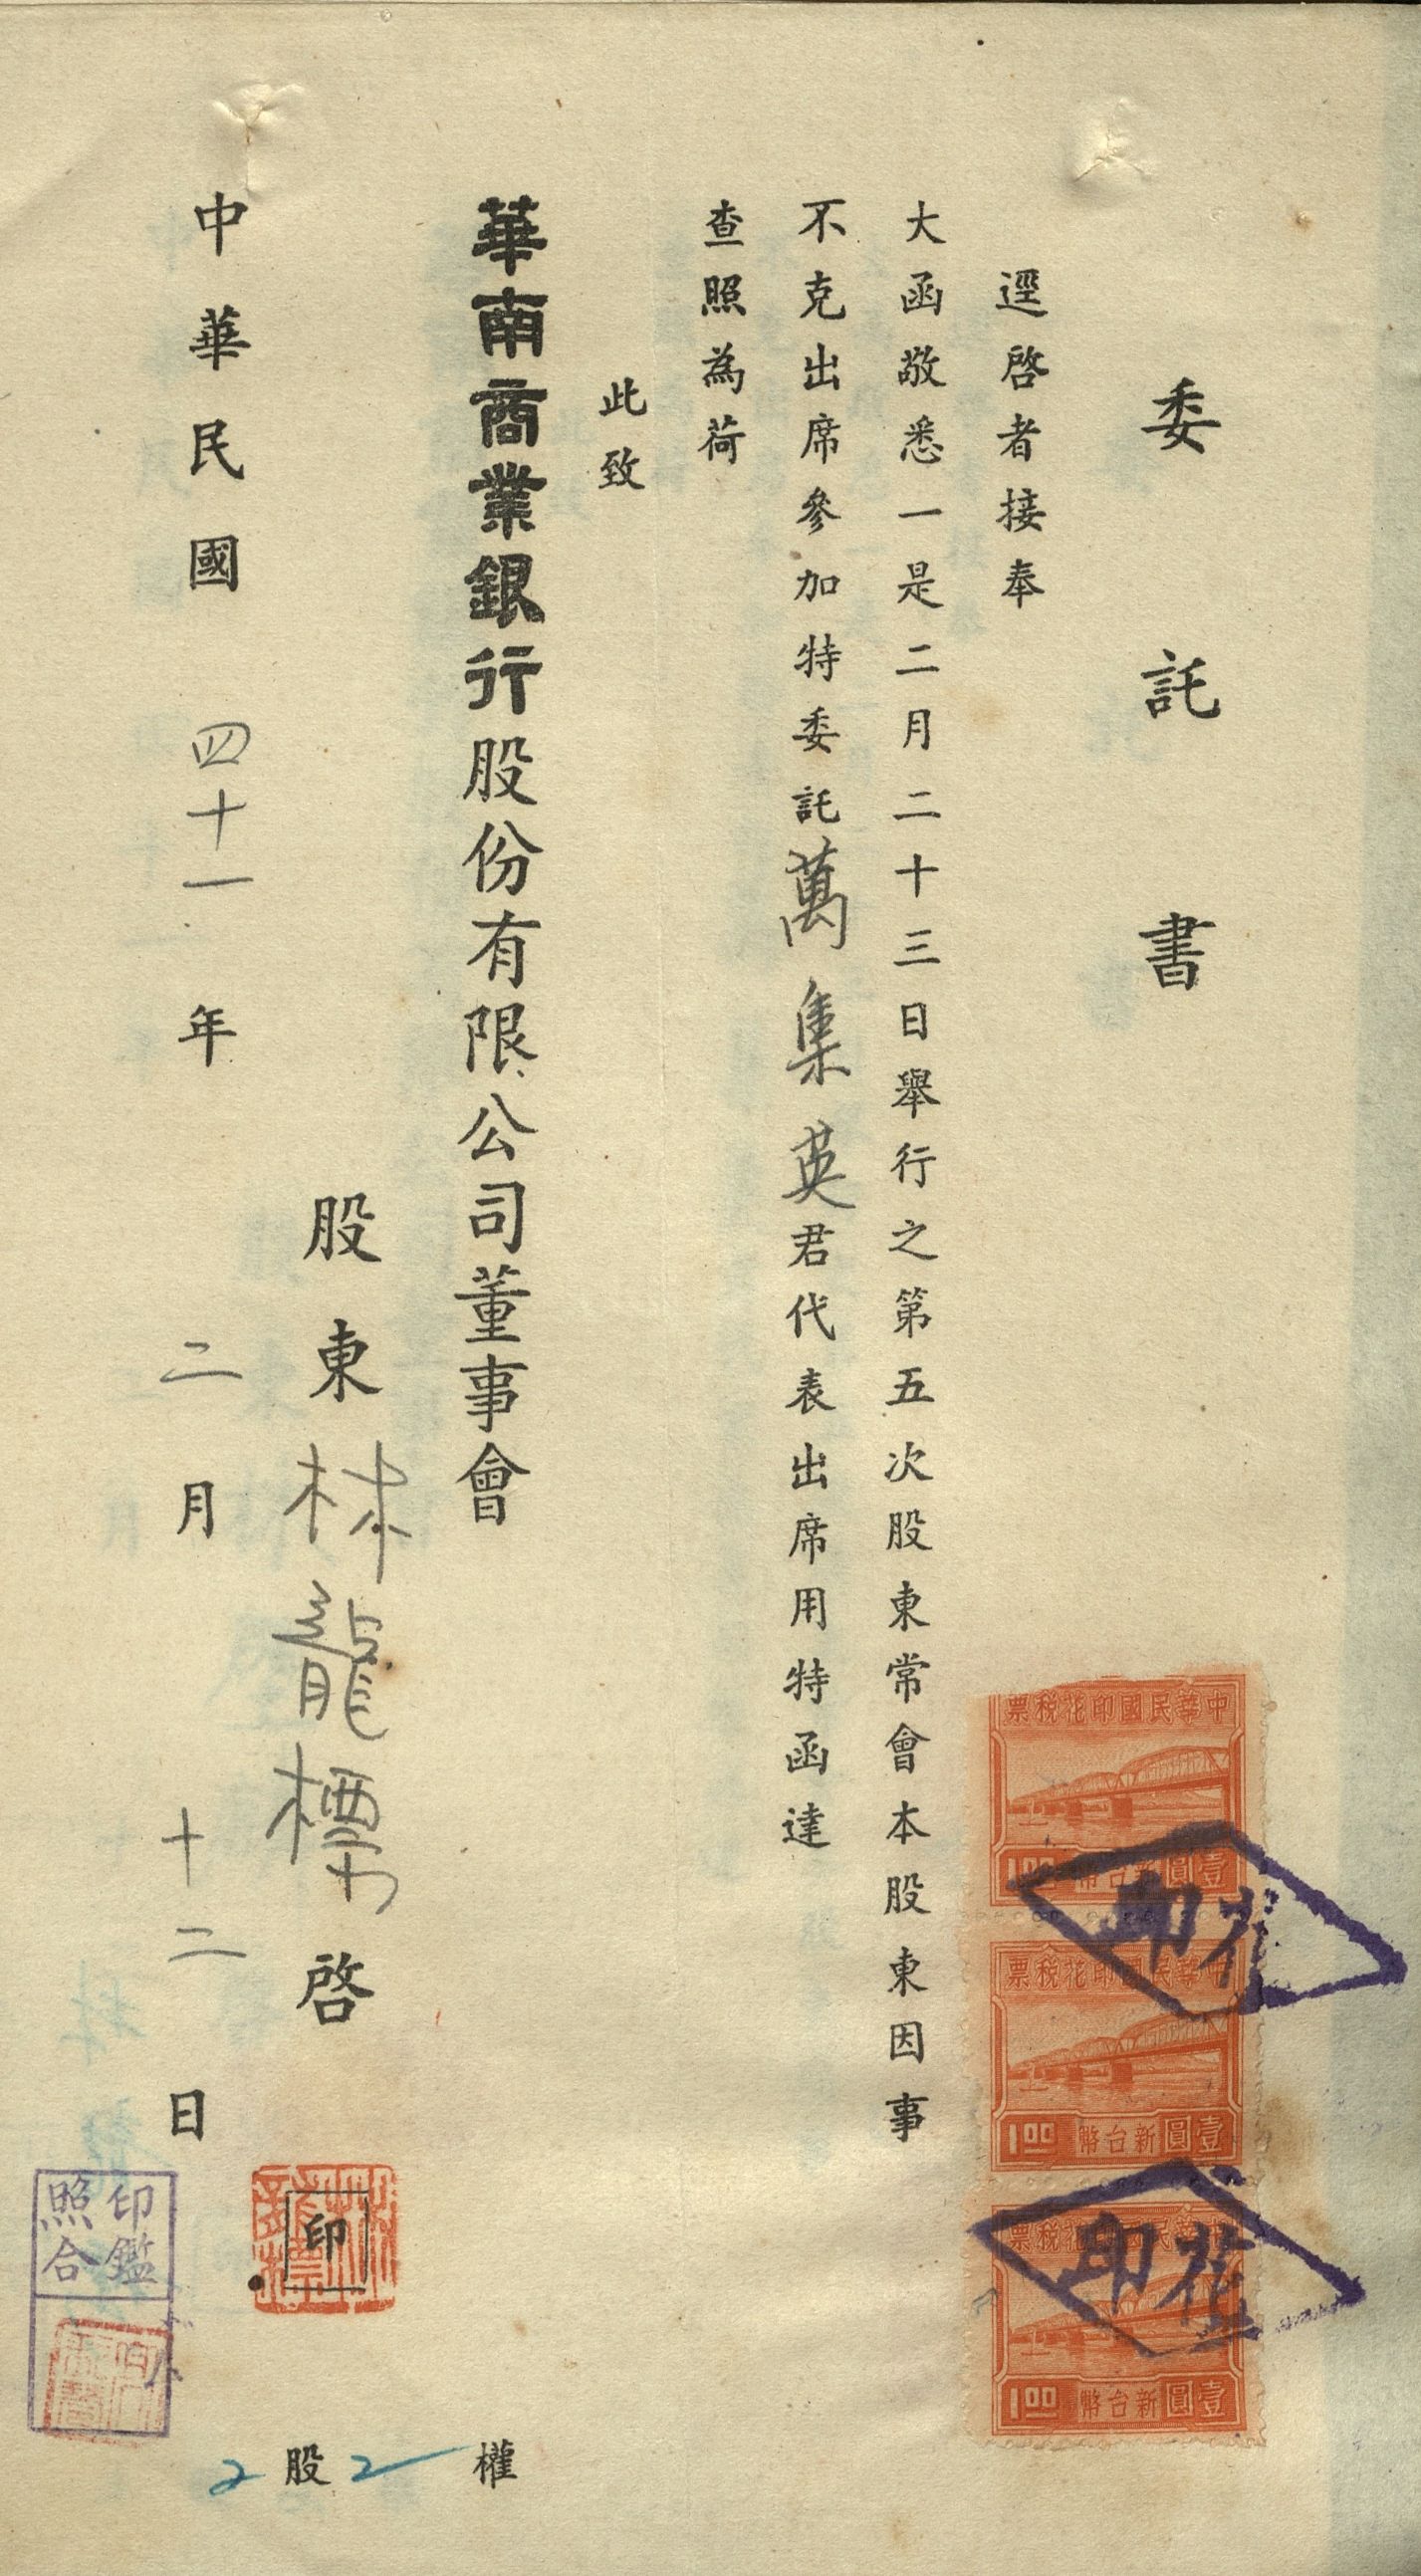 委託書
逕啓者接奉
大函敬悉一是二月二十三日舉行之第五次股東常會本股東因事
不克出席參加特委託萬集英君代表出席用特函達
查照為荷
此致
華南商業銀行股份有限公司董事會
股東林龍標啓
印
中華民國四十一年二月十二日
2股2權
印鑑
照合
中華民國印花稅票
新台幣壹圓
1.00
中華民國印花稅票
新台幣壹圓
1.00
中華民國印花稅票
新台幣壹圓
1.00
印花
印花
林龍標